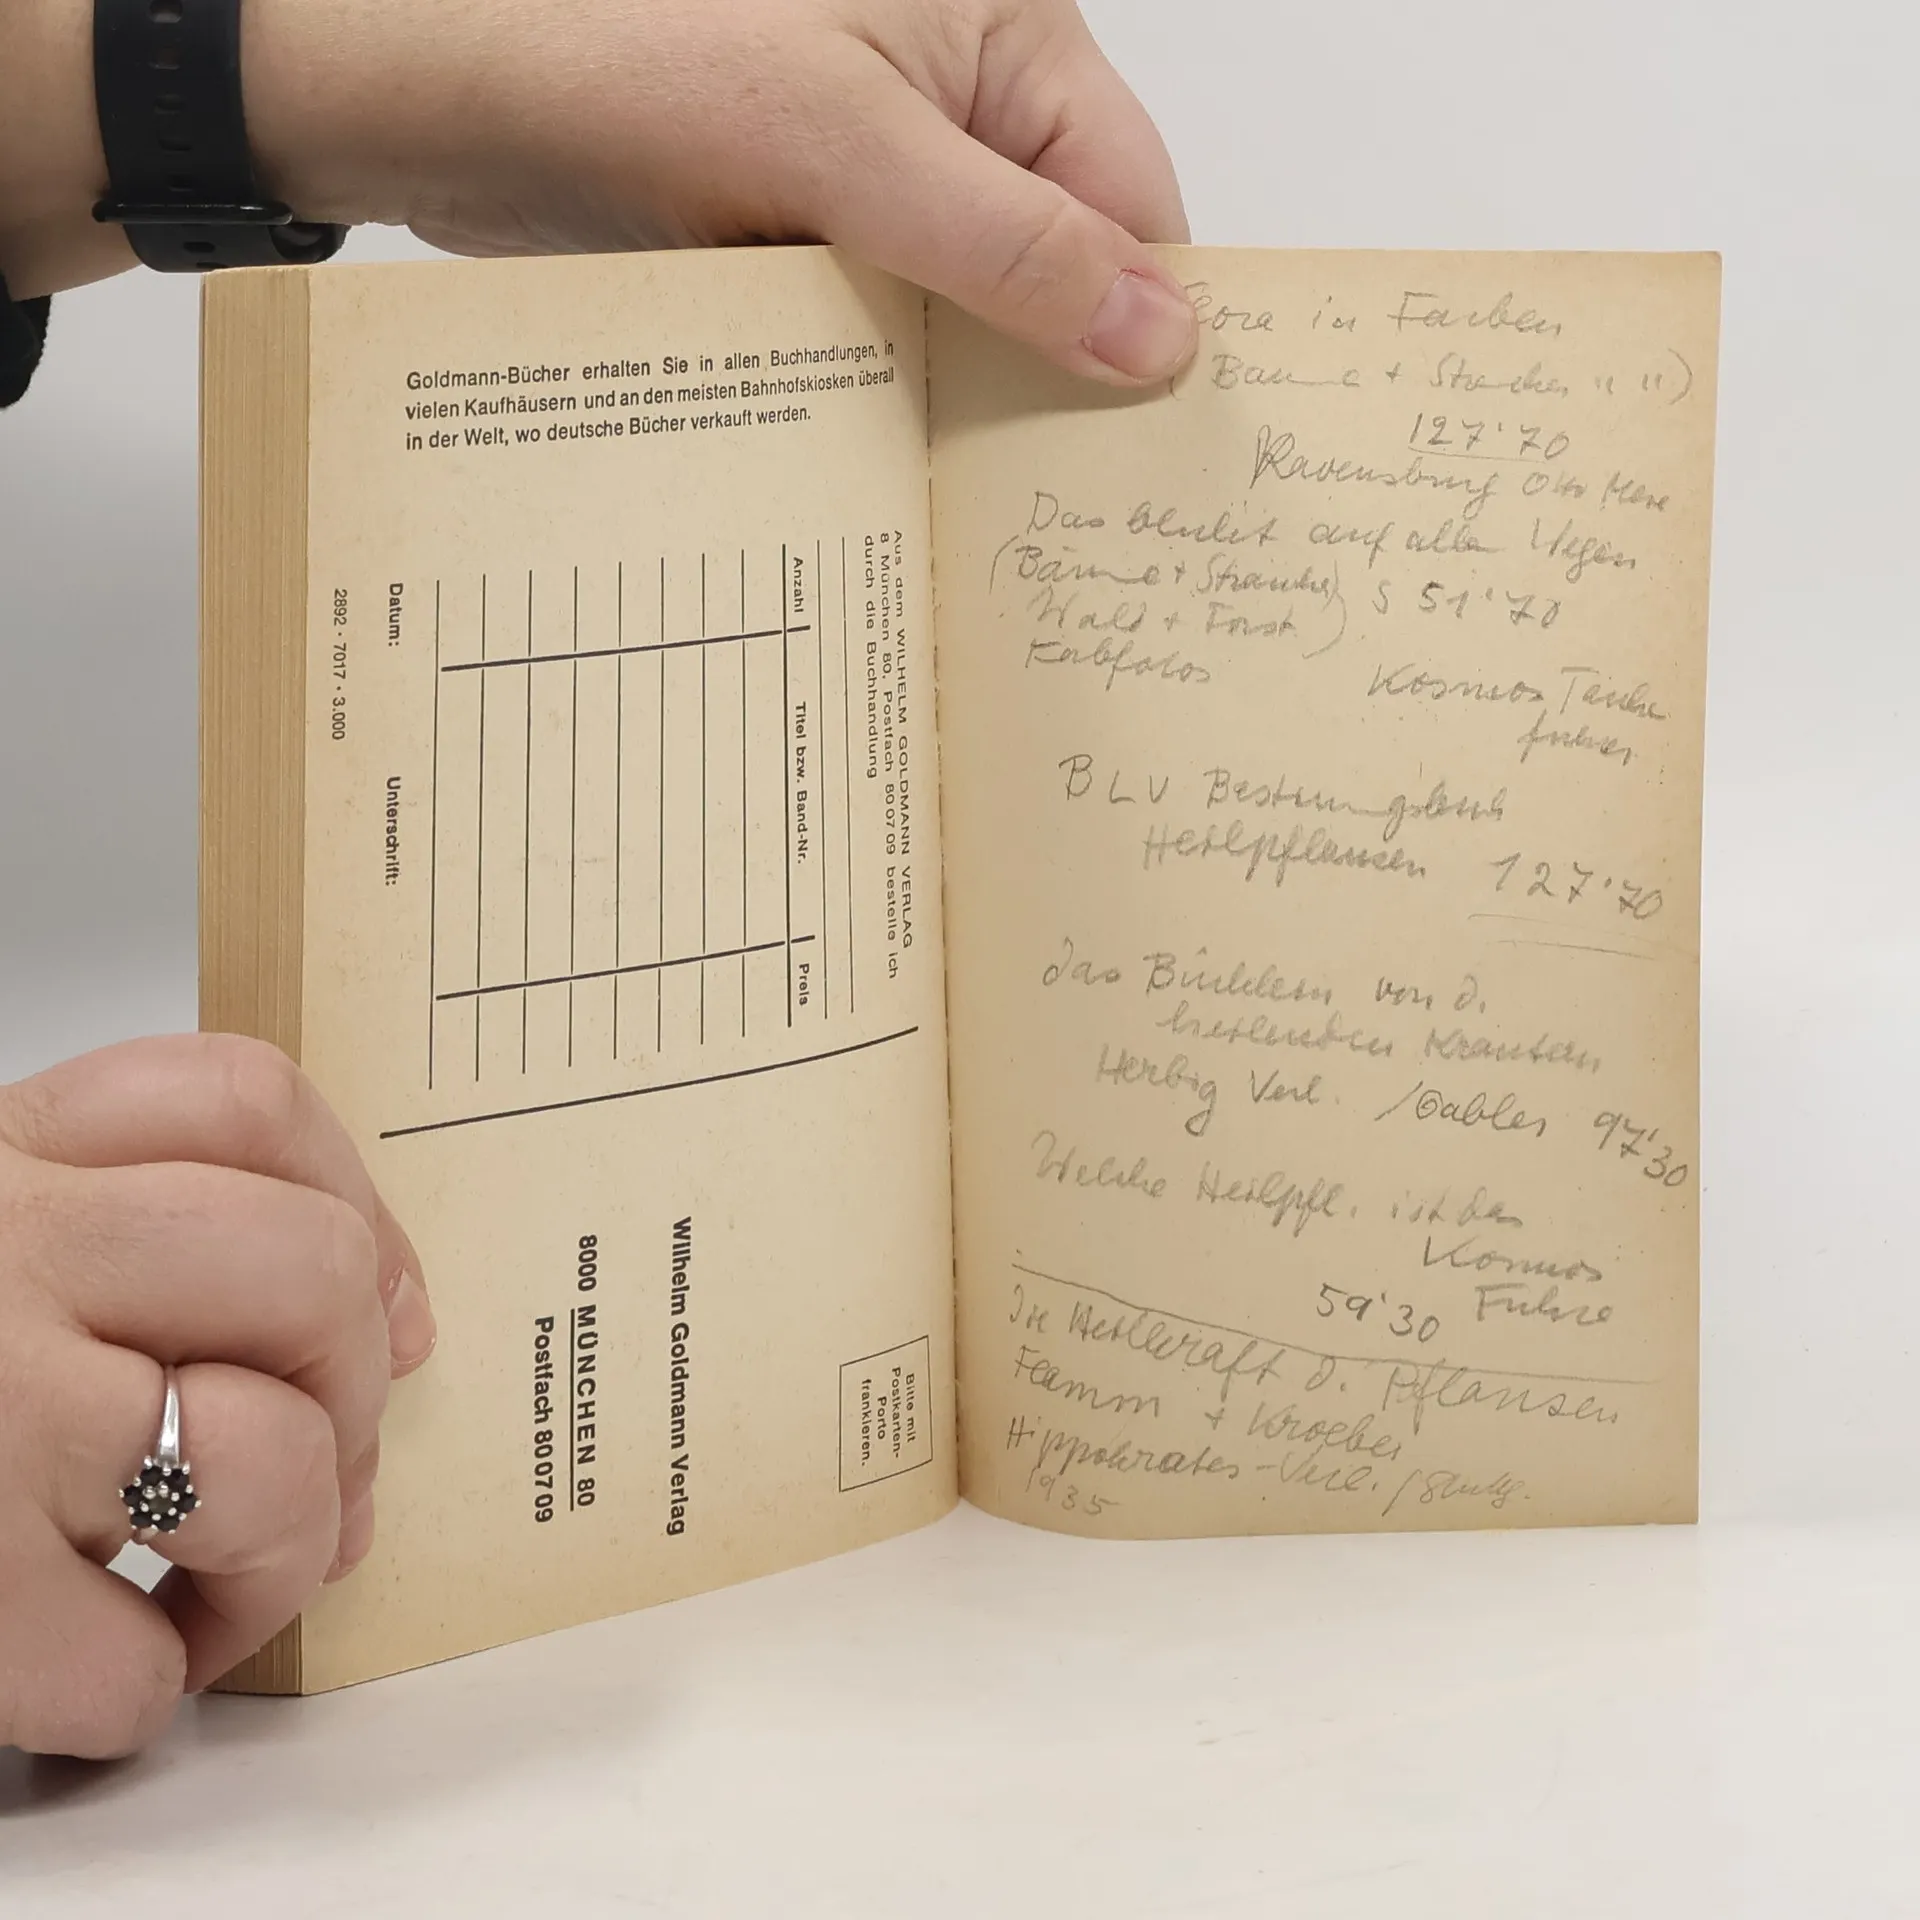 Goldmann-Bücher erhalten Sie in allen Buchhandlungen, in
vielen Kaufhäusern und an den meisten Bahnhofskiosken überall
in der Welt, wo deutsche Bücher verkauft werden.
Aus dem WILHELM GOLDMANN VERLAG
8 München 80, Postfach 80 07 09 bestelle ich
durch die Buchhandlung
Anzahl Titel bzw. Band-Nr. Preis
Datum: Unterschrift:
2892 · 7017 · 3.000
Bitte mit
Postkarten-
Porto
frankieren.
Wilhelm Goldmann Verlag
8000 MÜNCHEN 80
Postfach 80 07 09
Flora in Farben
(Bäume + Sträucher " ")
127'70
Ravensburg Otto
Das blüht auf allen Wegen
(Bäume + Sträucher) S 51'70
Wald + Forst)
Farbfotos
Kosmos
BLV Bestimmungsbuch
Heilpflanzen 127'70
das Büchlein von d.
heilenden Kräutern
Herbig Verl. / 97'30
Welche Heilpfl. ist das
Kosmos
59'30 Führer
Die Heilkraft d. Pflanzen
Flamm + Kroeber
Hippokrates-Verl. / Stuttg.
1935